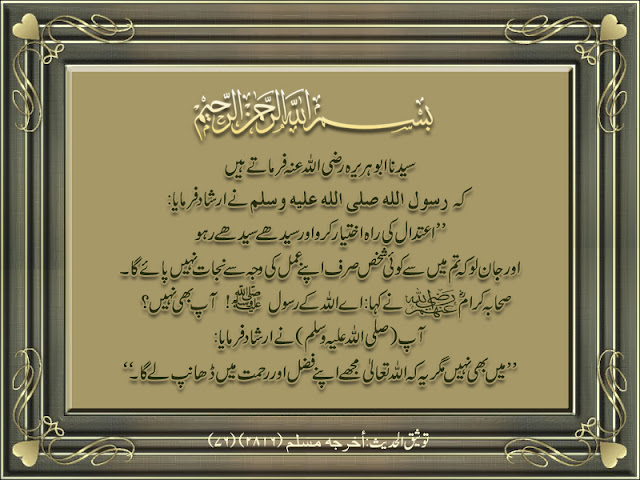 بسم الله الرحمن الرحيم
سیدنا ابو ہریرہ رضی اللہ عنہ فرماتے ہیں
کہ رسول الله صلى الله عليه وسلم نے ارشاد فرمایا:
”اعتدال کی راہ اختیار کرو اور سیدھے سیدھے رہو
اور جان لو کہ تم میں سے کوئی شخص صرف اپنے عمل کی وجہ سے نجات نہیں پائے گا۔
صحابہ کرامؓ رضي الله عنهم نے کہا: اے اللہ کے رسول ﷺ! آپ بھی نہیں؟
آپ (صلی اللہ علیہ وسلم) نے ارشاد فرمایا:
”میں بھی نہیں مگر یہ کہ اللہ تعالیٰ مجھے اپنے فضل اور رحمت میں ڈھانپ لے گا۔“
توثیق الحدیث: أخرجه مسلم (۲۸۱۶) (۷۶)